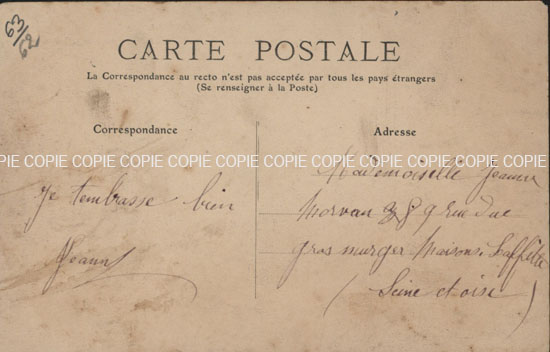 63/62
CARTE POSTALE
La Correspondance au recto n'est pas acceptée par tous les pays étrangers
(Se renseigner à la Poste)
Correspondance
Adresse
COPIE COPIE COPIE COPIE COPIE COPIE COPIE COPIE COPIE COPIE
Je tembrasse bien
Mademoiselle Jeanne
Morvan 9 rue du
gros murger Maisons Laffitte
(Seine et oise)